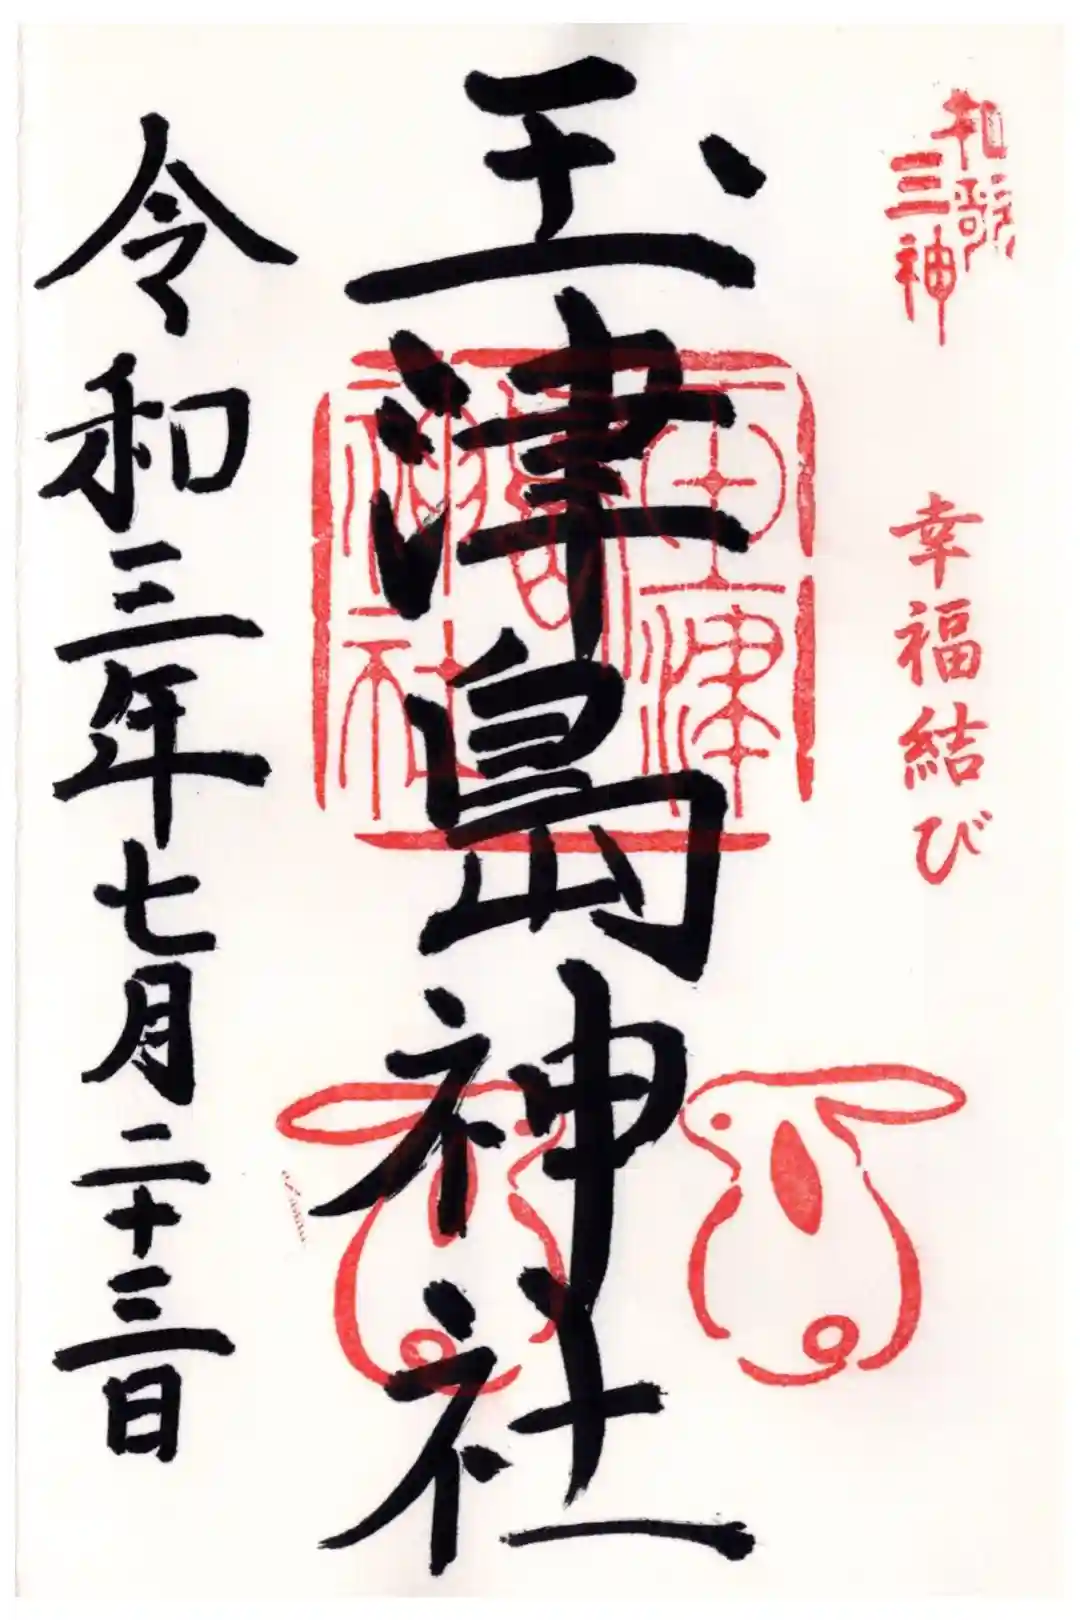 和歌
三神
幸福結び
玉津島神社
玉津
島
神社
令和三年七月二十三日